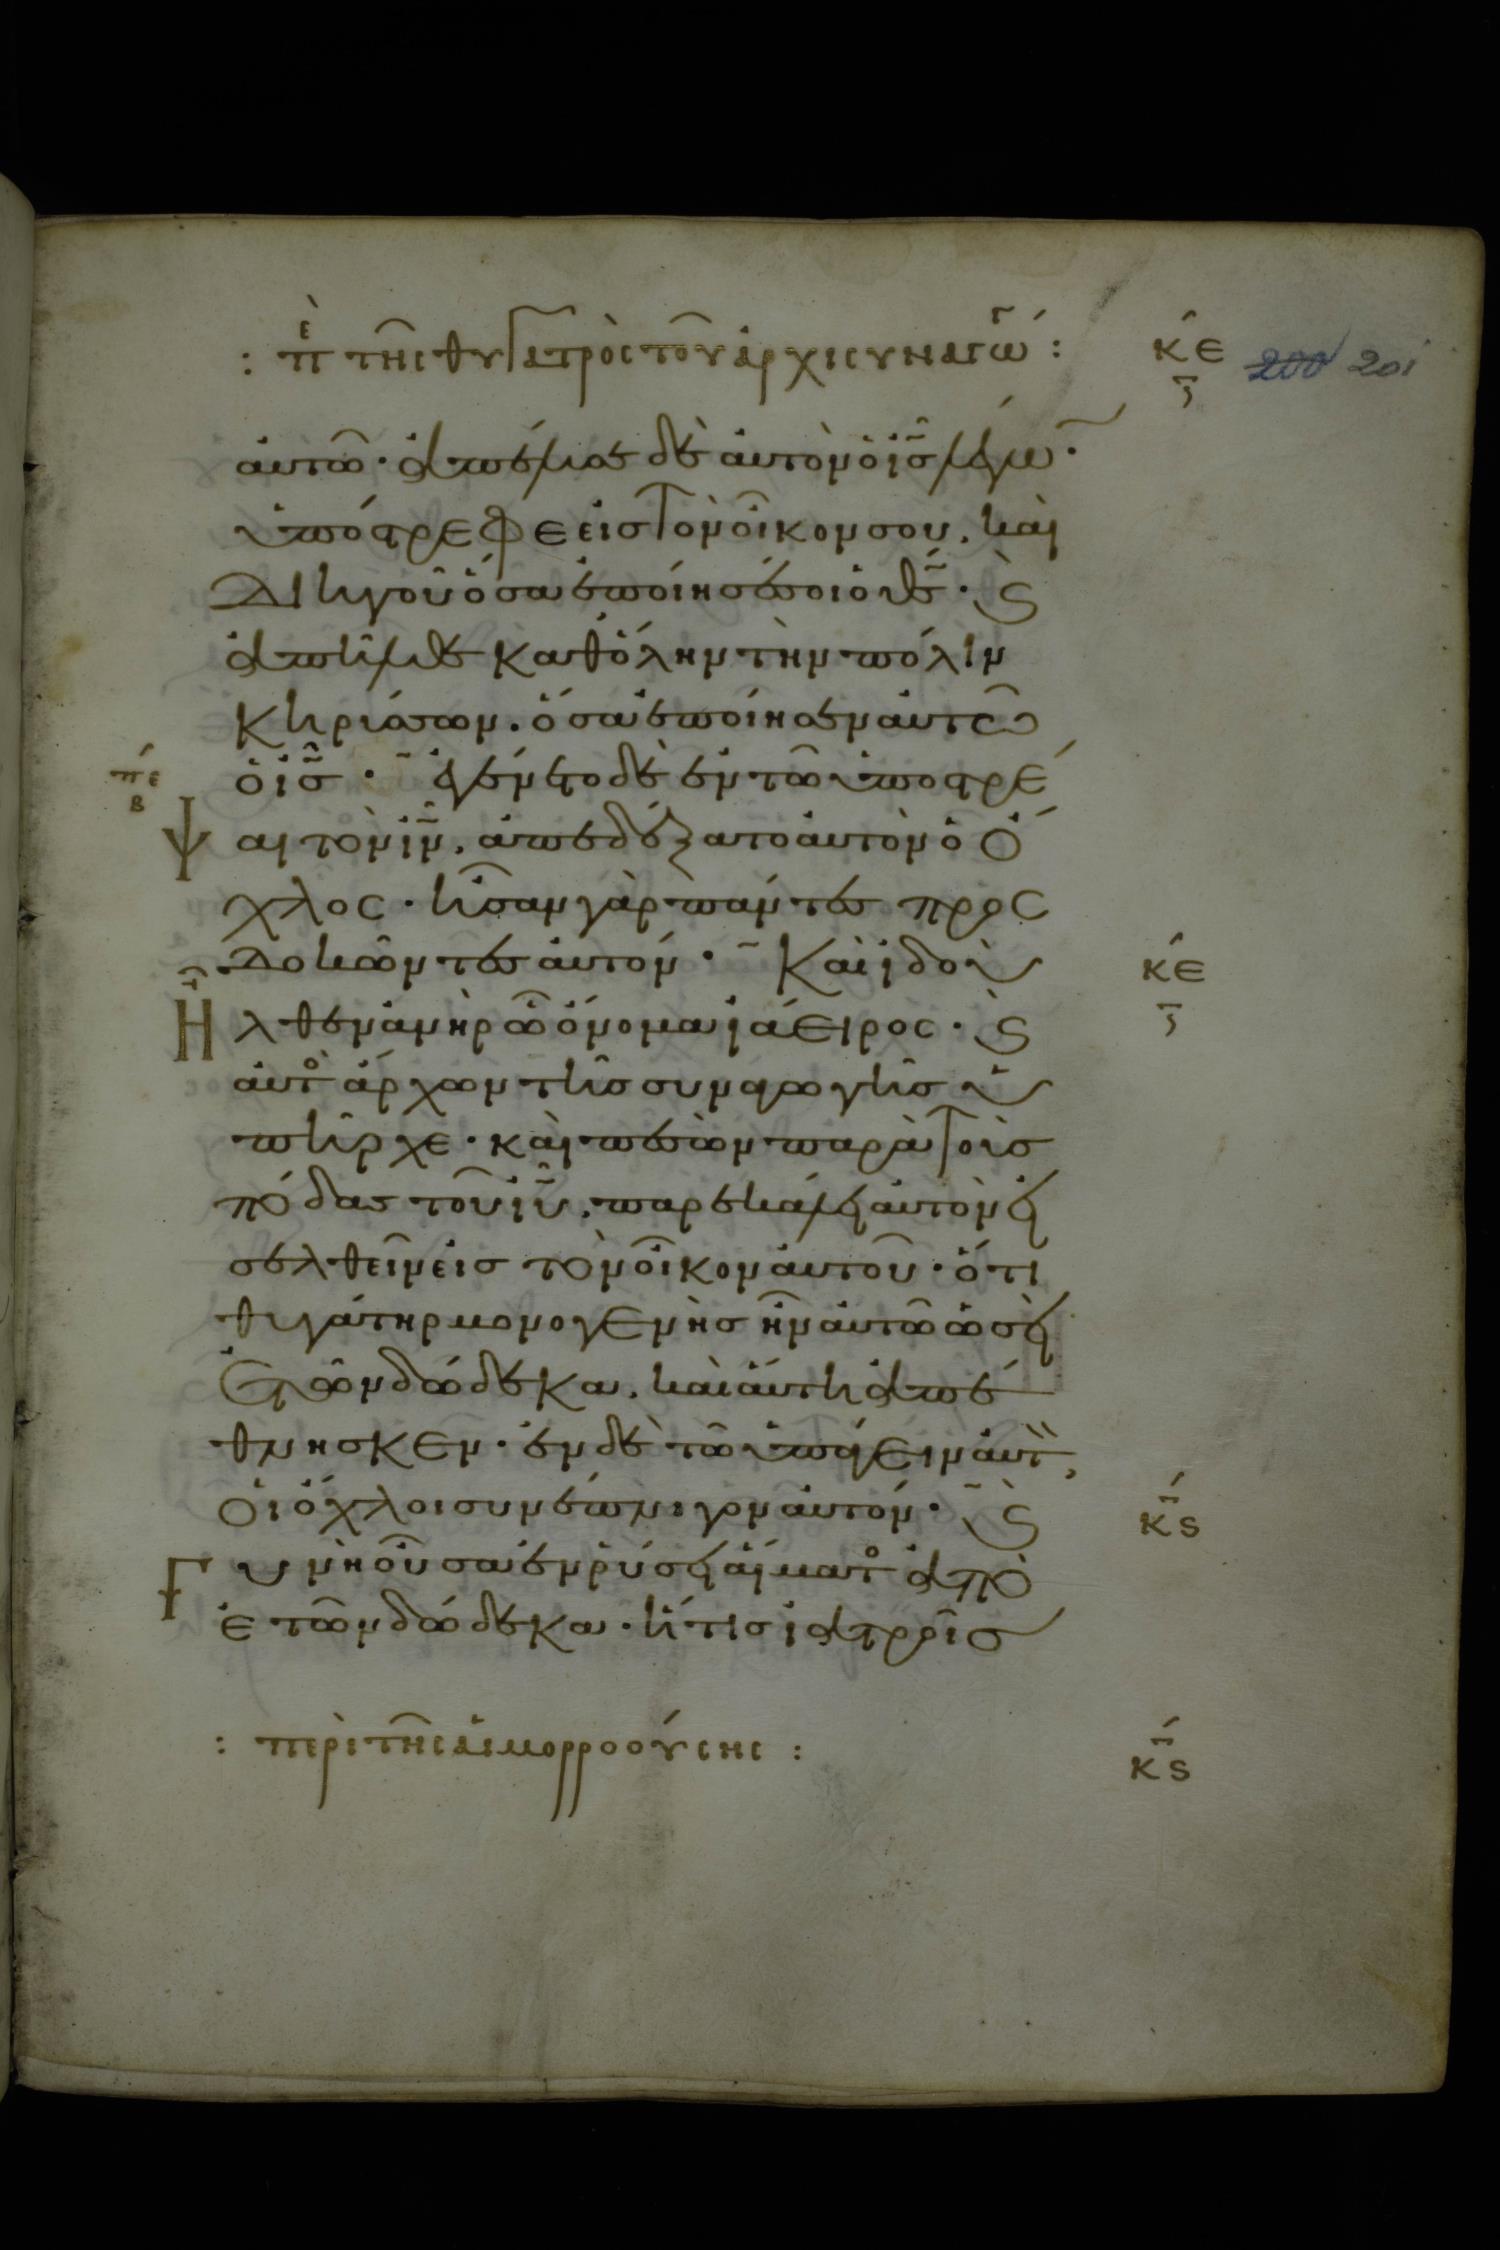 : πὲ τῆς θυγατρὸς τοῦ ἀρχισυναγώγ : κε 200 201
αὐτῶ· ἀπέλυσε δὲ αὐτὸν ὁ ις λέγων·
ὑπόστρεφε εἰς τὸν οἶκον σου, καὶ
διηγοῦ ὅσα ἐποίησέ σοι ὁ θς· ϗ
ἀπῆλθε καθ ὅλην τὴν πόλιν
κηρύσσων· ὅσα ἐποίησεν αὐτῶ
ὁ ις· ἐγένετο δὲ ἐν τῶ ὑποστρέ
πε
β
ψαι τὸν ιν, ἀπεδέξατο αὐτὸν ὁ ὄ
χλος· ἦσαν γὰρ πάντες προς
δοκῶντες αὐτόν· Καὶ ἰδοὺ κε
Ηλθεν ἀνὴρ ὧ ὄνομα ἰάειρος· ϗ
αὐτὸς ἄρχων τῆς συναγωγῆς ὑ
πῆρχε· καὶ πεσὼν παρὰ τοὺς
πόδας τοῦ ιυ, παρεκάλει αὐτὸν εἰ
σελθεῖν εἰς τὸν οἶκον αὐτοῦ· ὅτι
θυγάτηρ μονογενὴς ἦν αὐτῶ ὡσεὶ
ἐτῶν δώδεκα, καὶ αὕτη ἀπέ
θνησκεν· ἐν δὲ τῶ ὑπάγειν αὐτ,
οἱ ὄχλοι συνέπνιγον αὐτόν· ϗ κς
Γυνὴ οὖσα ἐν ῥύσει αἵματος ἀπὸ
ἐτῶν δώδεκα· ἥτις ἰατροῖς
: περὶ τῆς αἱμορροούσης : κς